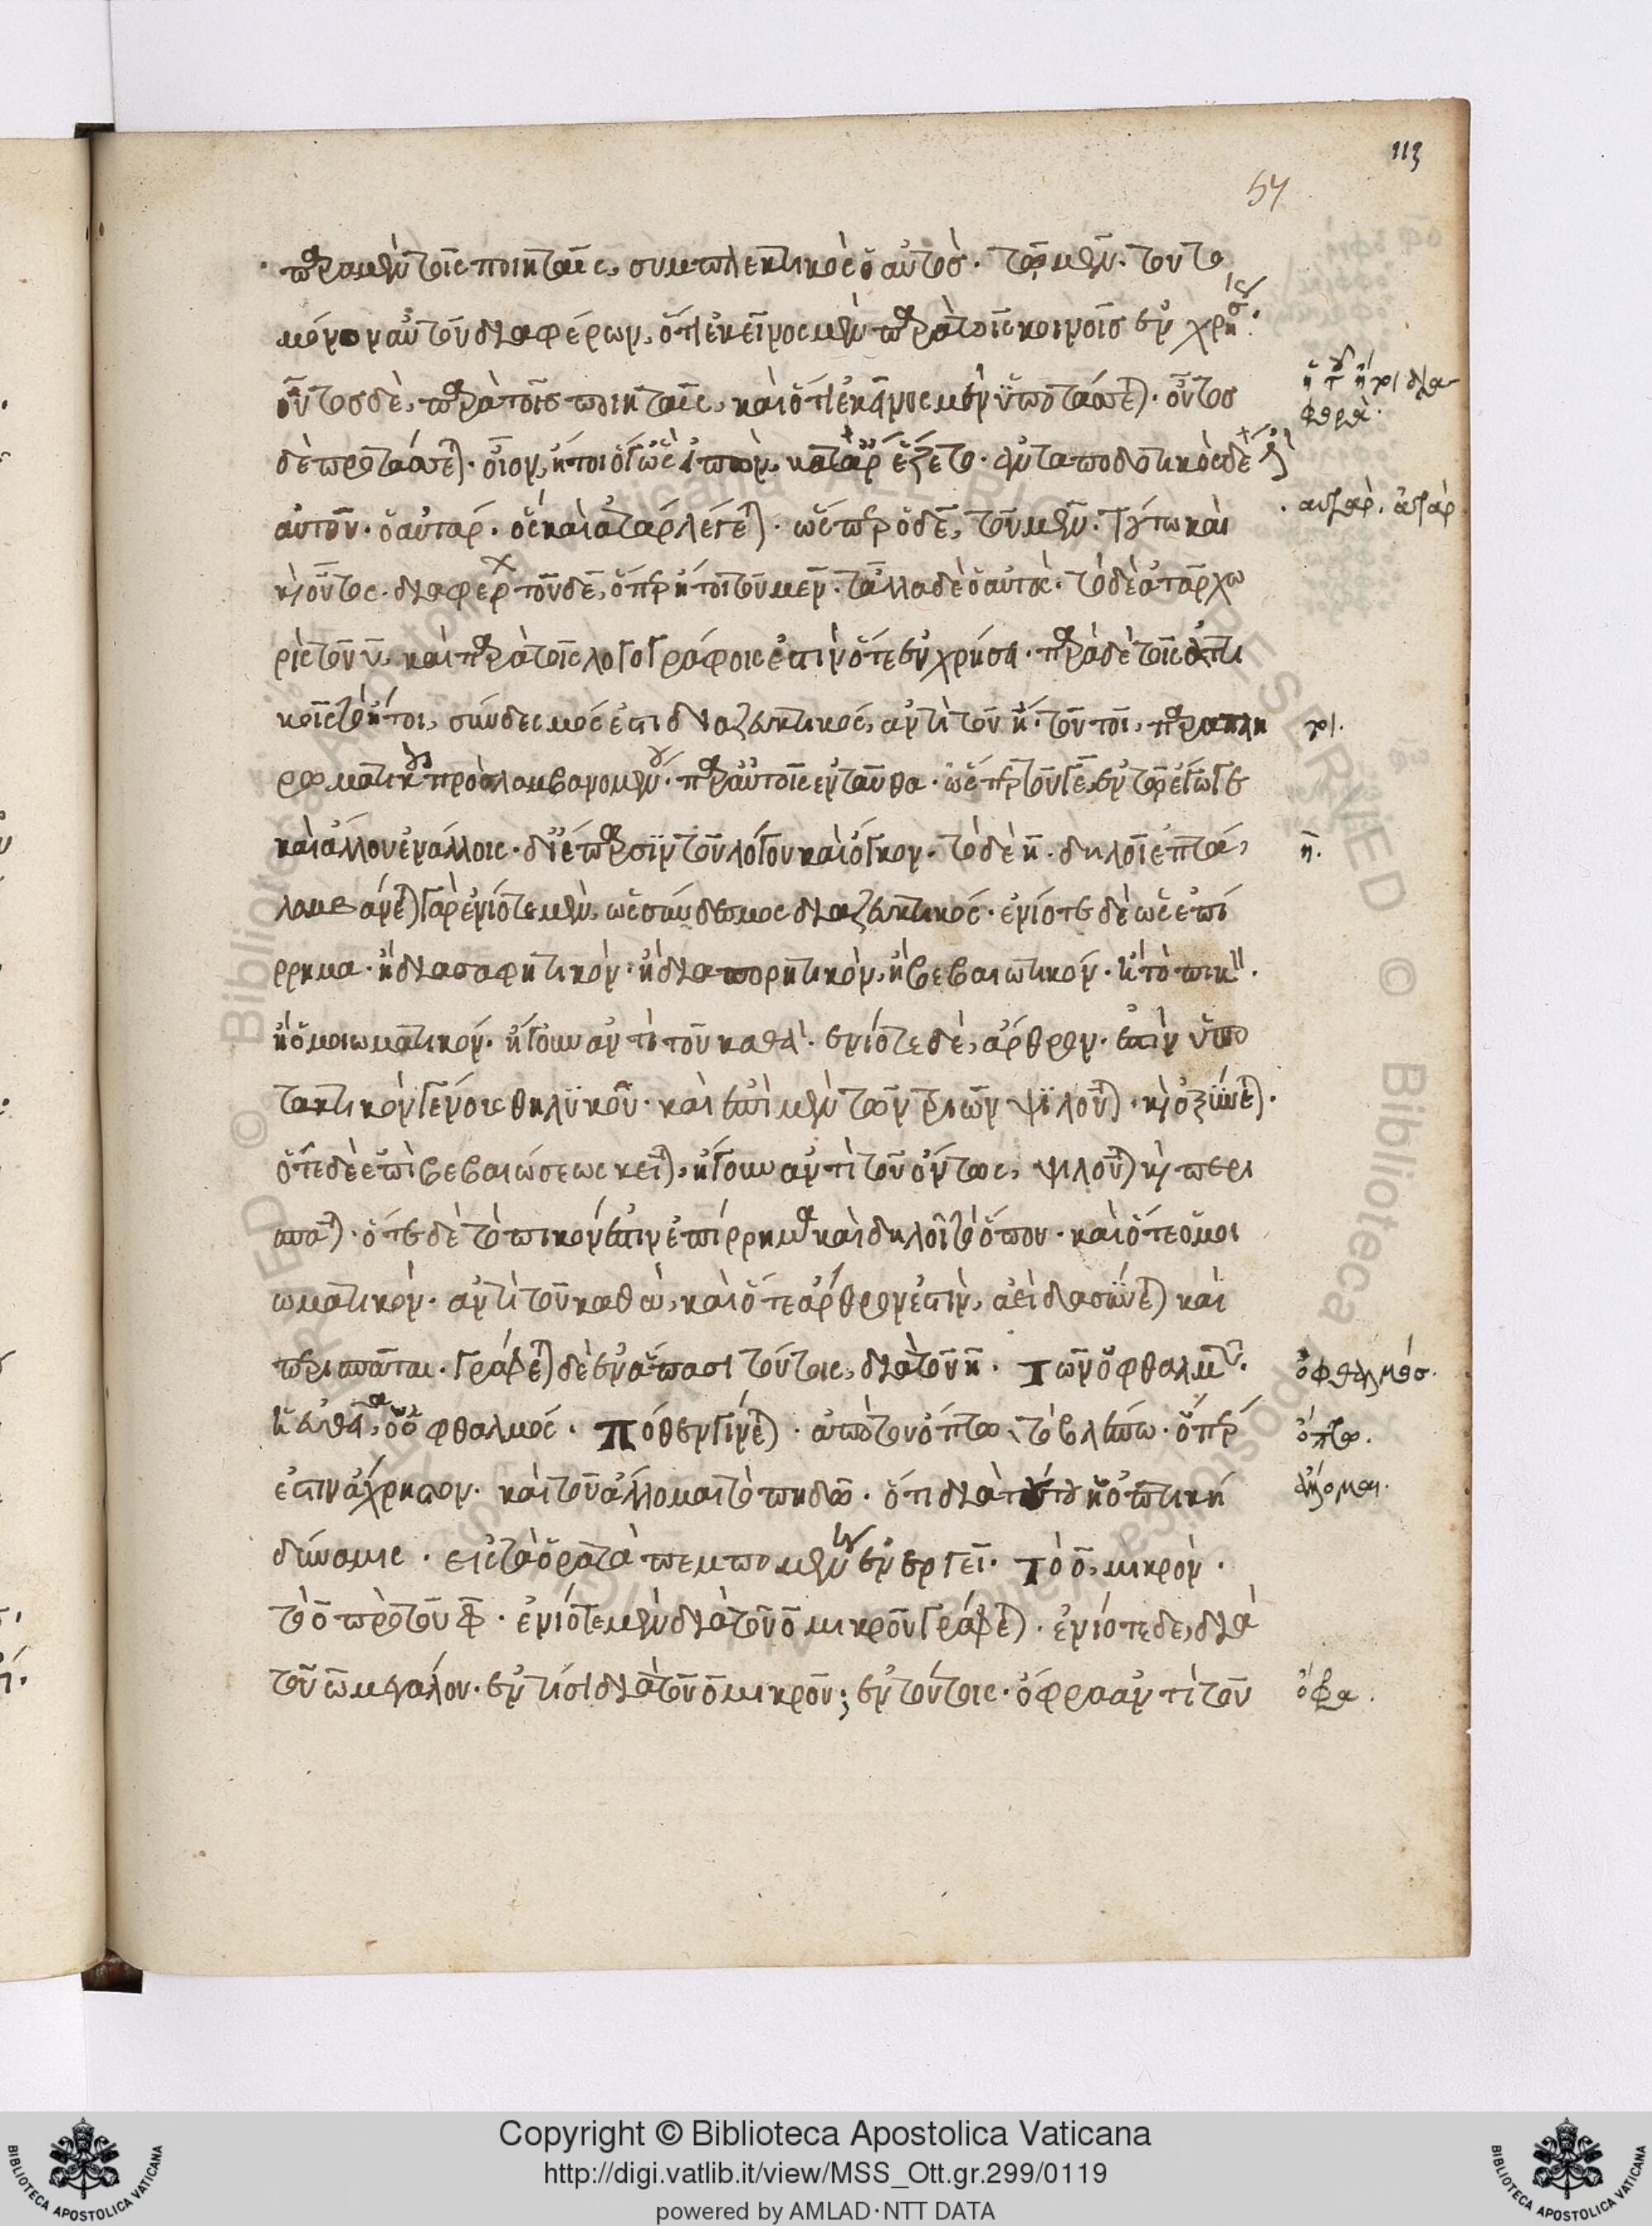 113
57
παρα μὲν τοῖς ποιηταῖς, συμπλεκτικὸς ὁ αὐτὸς. τῶ μέν. τούτω
μόνον αὐτοῦ διαφέρων, ὅτι ἐκεῖνος μὲν παρὰ τοῖς κοινοῖς ἐν χρήσει.
οὗτος δὲ, παρὰ τοῖς ποιηταῖς, καὶ ὅτι ἐκεῖνος μὲν ὑποτάσσεται. οὗτος
δὲ προτάσσεται. οἷον, ἤτοι ὅγ' ὡς εἰπὼν κατὰρ ἕζετο. ἀνταποδοτικὸς δὲ
αὐτοῦ. ὁ αὐτάρ. ὃς καὶ ἀτὰρ λέγεται. ὥσπερ ὁ δὲ, τοῦ μέν. τύπω και
καὶ οὗτος. διαφέρει τοῦ δὲ, ὅπερ ἤτοι τοῦ μεν. τἄλλα δὲ ὁ αὐτός. τὸ δὲ ἀτὰρ χω
ρὶς τοῦ υ, καὶ παρὰ τοῖς λογογράφοις ἐστὶν ὅτε ἐν χρήσει. παρὰ δὲ τοῖς ἀττι
κοῖς τὸ ἤτοι, σύνδεσμός ἐστι διαζευκτικός, ἀντὶ τοῦ ἤ. τοῦ τοι, παραπλη
ρωματικοῦ προσλαμβανομένου. παρ' αὐτοῖς ἐνταῦθα. ὥσπερ τοῦ γε, ἐν τῶ ἐγωγε
καὶ ἄλλου ἐν ἄλλοις. δι' ἔπαρσιν τοῦ λόγου καὶ ὄγκον. τὸ δὲ η. δηλοῖ ἑπτά,
λαμβάνεται γὰρ ἐνίοτε μὲν, ὡς σύνδεσμος διαζευκτικός. ἐνίοτε δὲ ὡς ἐπί
ρρημα. ἢ διασαφητικὸν. ἢ διαπορητικὸν, ἢ βεβαιωτικόν. ἢ τοπικ.
ἢ ὁμοιωματικόν. ἤγουν ἀντὶ τοῦ καθά. ἐνίοτε δὲ, ἄρθρον. ἐστὶν ὑπο
τακτικὸν γένους θηλυκοῦ. καὶ ἐπὶ μὲν τῶν τριῶν ψιλοῦται. καὶ ὀξύνεται.
ὅτε δὲ ἐπὶ βεβαιώσεως κεῖται, ἤγουν ἀντὶ τοῦ ὄντως, ψιλοῦται καὶ περι
σπᾶται. ὅτε δὲ τοπικόν ἐστιν ἐπίρρημα καὶ δηλοῖ τὸ ὅπου. καὶ ὅτε ὁμοι
ωματικὸν. ἀντὶ τοῦ καθὼ, καὶ ὅτε ἄρθρον ἐστὶν, ἀεὶ δασύνεται καὶ
περισπᾶται. γράφεται δὲ ἐν ἅπασι τούτοις, διὰ τοῦ η. τῶν ὀφθαλμῶν.
ἡ εὐθεῖα, ὁ ὀφθαλμός. πόθεν γίνεται. ἀπὸ τοῦ ὄπτω τὸ βλέπω. ὅπερ
ἐστιν ἄχρηστον. καὶ τοῦ ἅλλομαι τὸ πηδῶ. ὅτι διὰ τούτου ἡ ὀπτικὴ
δύναμις. εἰς τὰ ὁρατὰ πεμπομένη ἐνεργεῖ. τὸ ο, μικρὸν.
τὸ ο πρὸ τοῦ φ. ἐνίοτε μὲν διὰ τοῦ ο μικροῦ γράφεται. ἐνίοτε δε, διὰ
τοῦ ω μεγάλου. ἐν τίσι διὰ τοῦ ο μικροῦ; ἐν τούτοις. ὄφρα ἀντὶ τοῦ
αυταρ. ἀτὰρ
τοι.
η.
ὀφθαλμός.
ὄπτω.
ἅλλομαι.
ὄφρα.
Copyright © Biblioteca Apostolica Vaticana
http://digi.vatlib.it/view/MSS_Ott.gr.299/0119
powered by AMLAD·NTT DATA
BIBLIOTECA APOSTOLICA VATICANA
BIBLIOTECA APOSTOLICA VATICANA